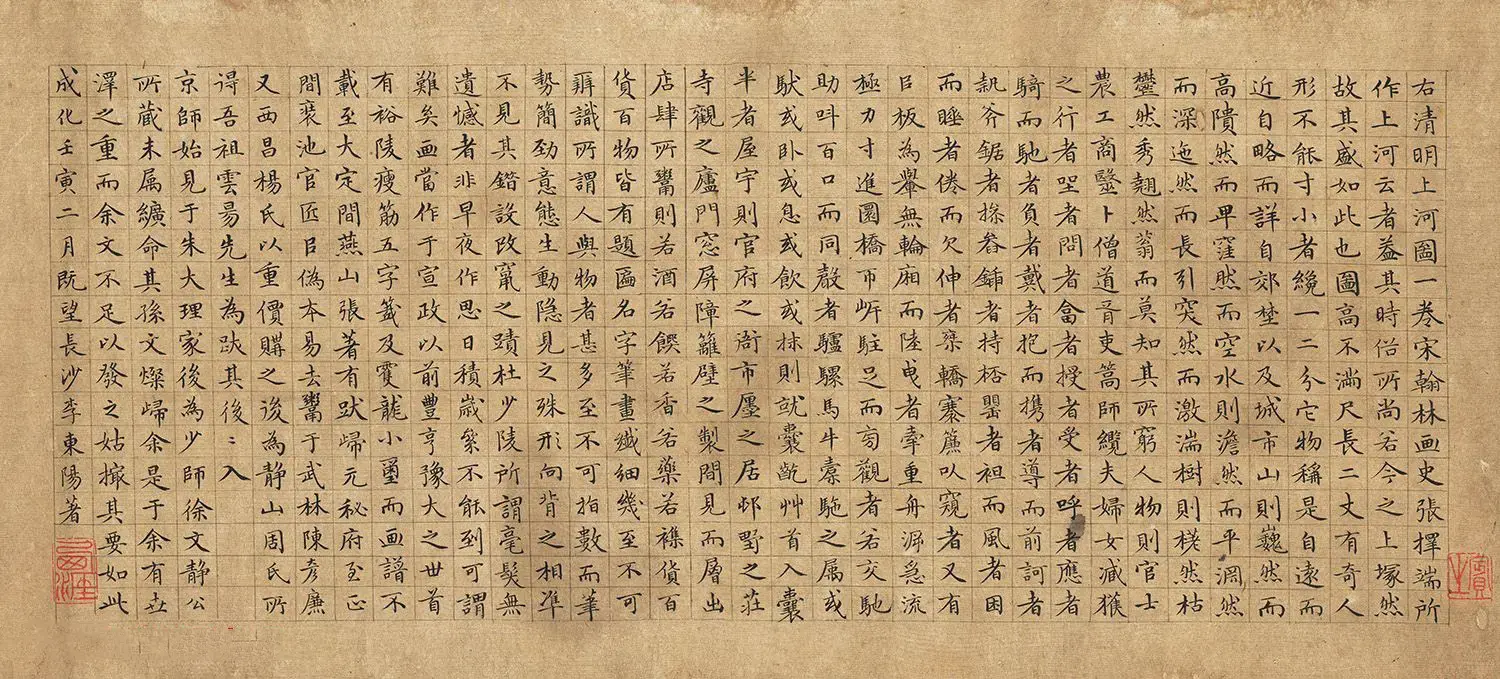 右清明上河圖一卷宋翰林画史張擇端所
作上河云者葢其時俗所尚若今之上塚然
故其盛如此也圖高不滿尺長二丈有奇人
形不能寸小者纔一二分它物稱是自遠而
近自略而詳自郊埜以及城市山則巍然而
高隤然而卑窪然而空水則澹然而平淵然
而深迤然而長引突然而激湍樹則槎然枯
鬱然秀翹然蓊而莫知其所窮人物則官士
農工商毉卜僧道胥吏篙師纜夫婦女臧獲
之行者坐者問者畣者授者受者呼者應者
騎而馳者負者戴者抱而携者導而前訶者
執斧鋸者操畚鍤者持桮罌者袒而風者困
而睡者倦而欠伸者乘轎搴簾以窺者又有
㠯板為轝無輪廂而陸曳者牽重舟泝急流
極力寸進圜橋帀岸駐足而旁觀者若交馳
助叫百口而同聲者驢騾馬牛橐駞之属或
馱或卧或息或飲或秣則就囊齕艸首入囊
半者屋宇則官府之衙市廛之居邨野之莊
寺觀之廬門窓屏障籬壁之製間見而層出
店肆所鬻則若酒若饌若香若藥若襍貨百
貨百物皆有題匾名字筆畫纖細幾至不可
辯識所謂人與物者甚多至不可指數而筆
勢簡勁意態生動隐見之殊形向背之相準
不見其錯設改竄之蹟杜少陵所謂毫髮無
遺憾者非早夜作思日積歲絫不能到可謂
難矣画當作于宣政以前豐亨豫大之世首
有裕陵瘦筋五字籖及雙龍小璽而画譜不
載至大定間燕山張著有跋歸元秘府至正
間裝池官匠㠯偽本易去鬻于武林陳彥廉
又西昌楊氏以重價購之後為静山周氏所
得吾祖雲昜先生為跋其後〻入
京師始見于朱大理家後為少師徐文靜公
所藏未属纊命其孫文燦歸余是于余有世
澤之重而余文不足以發之姑據其要如此
成化壬寅二月既望長沙李東陽著
賓之
西涯